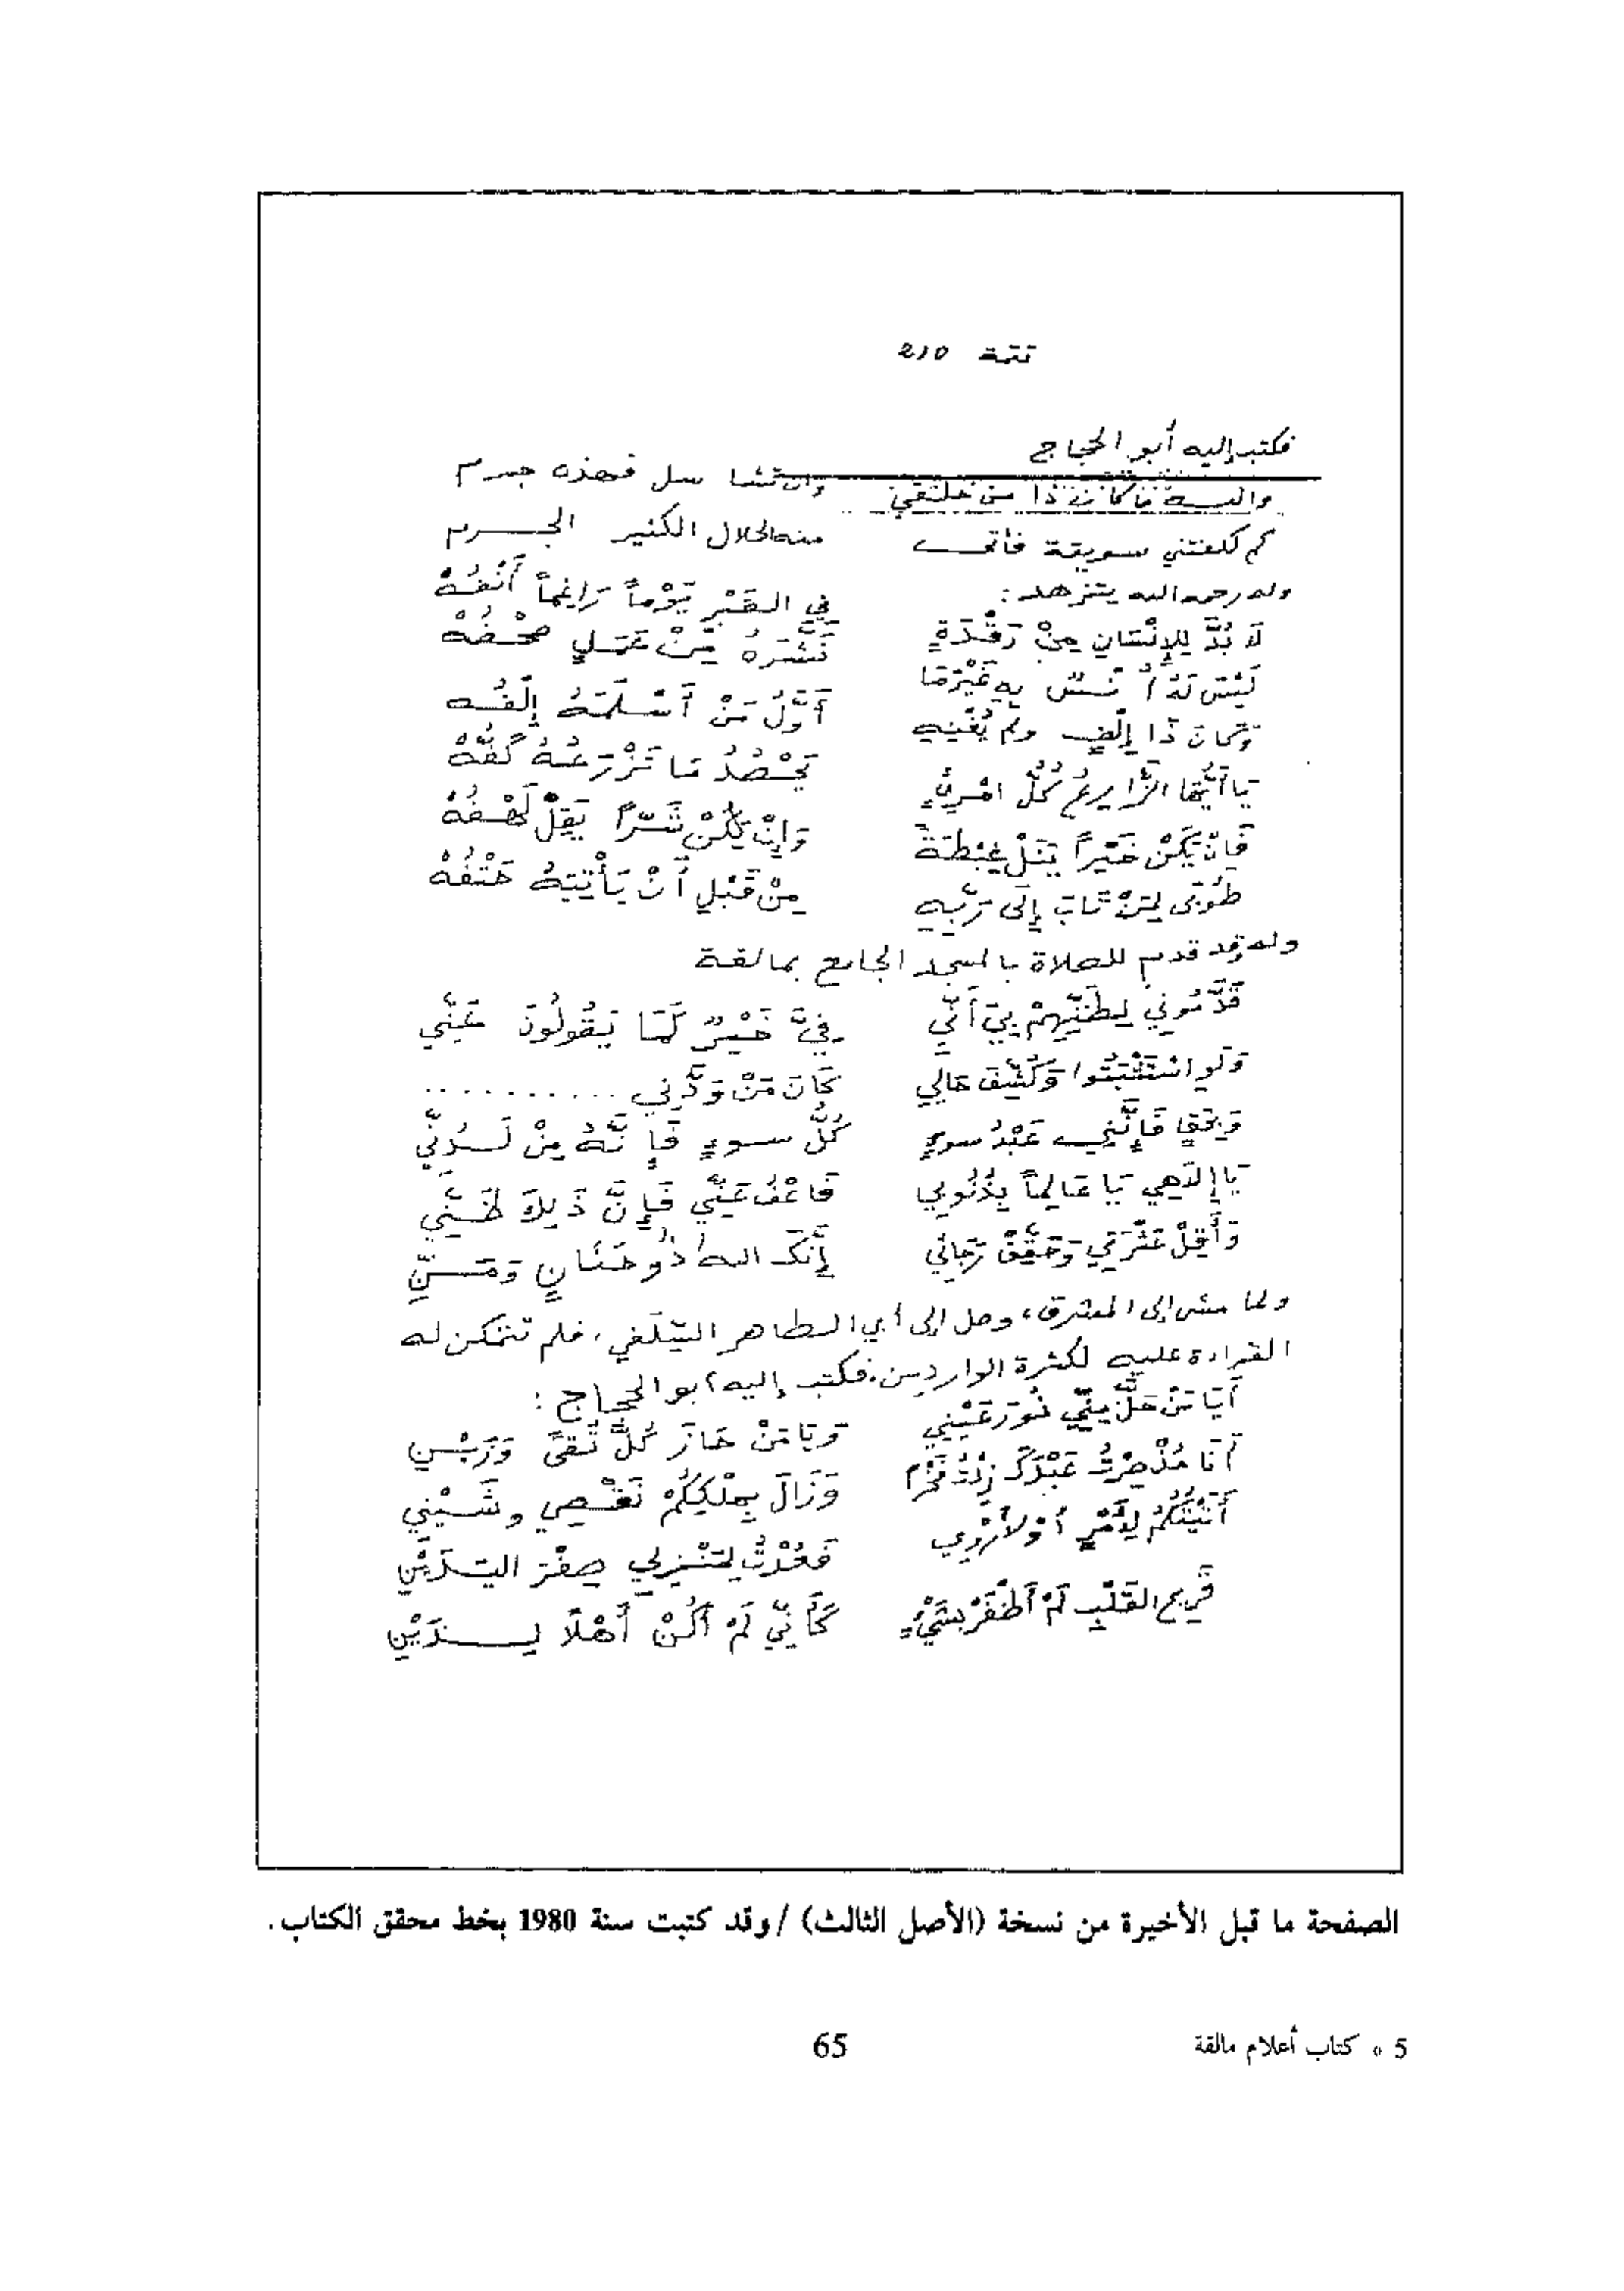 تتمة 210
فكتب إليه أبو الحجاج
والله ما كان ذا من خلقي وان تشا سل فهذه جرم
كم كلفتني سويقة فأتت منه الحلال الكثير الجرم
وله رحمه الله يتزهد:
لَا بُدَّ لِلإِنْسَانِ مِنْ رَقْدَةٍ فِي القَبْرِ يَوْماً رَاغِماً أَنْفُهْ
لَيْسَ لَهُ أُنْسٌ بِهِ غَيْرَمَا تَنْشُرَهُ مِنْ عَمَلٍ صُحْفُهْ
وَكَانَ ذَا إِلْفٍ ولم يُغْنِهِ أَوَّلُ مَنْ أَسْلَمَهُ إِلْفُه
يَا أَيُّهَا الزَّارِعُ كُلُّ امْرِئٍ يَحْصُدُ مَا تَزْرَعُهُ كَفُّهْ
فَإِنْ يَكُنْ خَيْراً يَنَلْ غِبْطَةً وَإِنْ يَكُنْ شَرّاً يَطِلْ لَهْفُهْ
طُوبَى لِمَنْ تَابَ إِلَى رَبِّهِ مِنْ قَبْلِ أَنْ يَأْتِيَهُ حَتْفُهْ
وله وقد قدم للصلاة بالمسجد الجامع بمالقة
قَدَّمُونِي لِظَنِّهِمْ بِيَ أَنِّي فِيَّ خَيْرٌ كَمَا يَقُولُونَ عَنِّي
وَلَو اسْتَثْبَتُوا وَكُشِّفَ حَالِي كَانَ مَنْ وَدَّنِي ...........
وَيْحَتِي فَإِنَّنِي عَبْدُ سوءٍ كُلُّ سوءٍ فَإِنَّهُ مِنْ لَدُنِّي
يَا إِلَهِي يَا عَالِماً بِذُنُوبِي فَاعْفُ عَنِّي فَإِنَّ ذَلِكَ ظَنِّي
وَأَقِلْ عَثْرَتِي وَحَقِّقْ رَجَائِي إِنَّكَ اللهُ ذُو حَنَانٍ وَمَنِّ
ولما مشى إلى المشرق، وصل إلى أبي الطاهر السِّلَفي، فلم تتمكن له
القراءة عليه لكثرة الواردين، فكتب إليه أبو الحجاج:
أَيَا مَنْ حَلَّ مِنِّي نُورَ عَيْنِي وَيَا مَنْ حَازَ كُلَّ تُقىً وَزَيْنِ
أَنَا مُذْ صِرْتُ عَبْدَكَ زِدْتُ فَخْراً وَزَالَ بِمِلْكِكُمْ نَقْصِي وشَيْنِي
أَتَيْتُكُمُ لِأَقْرَأَ أوْ لأَرْوِي فَعُدْتُ لِمَنْزِلِي صِفْرَ اليَدَيْنِ
قَرِيحَ القَلْبِ لَمْ أَظْفَرْ بِشَيْءٍ كَأَنِّي لَمْ أَكُنْ أَهْلًا لِذَيْنِ
الصفحة ما قبل الأخيرة من نسخة (الأصل الثالث) / وقد كتبت سنة 1980 بخط محقق الكتاب.
65
5 * كتاب أعلام مالقة